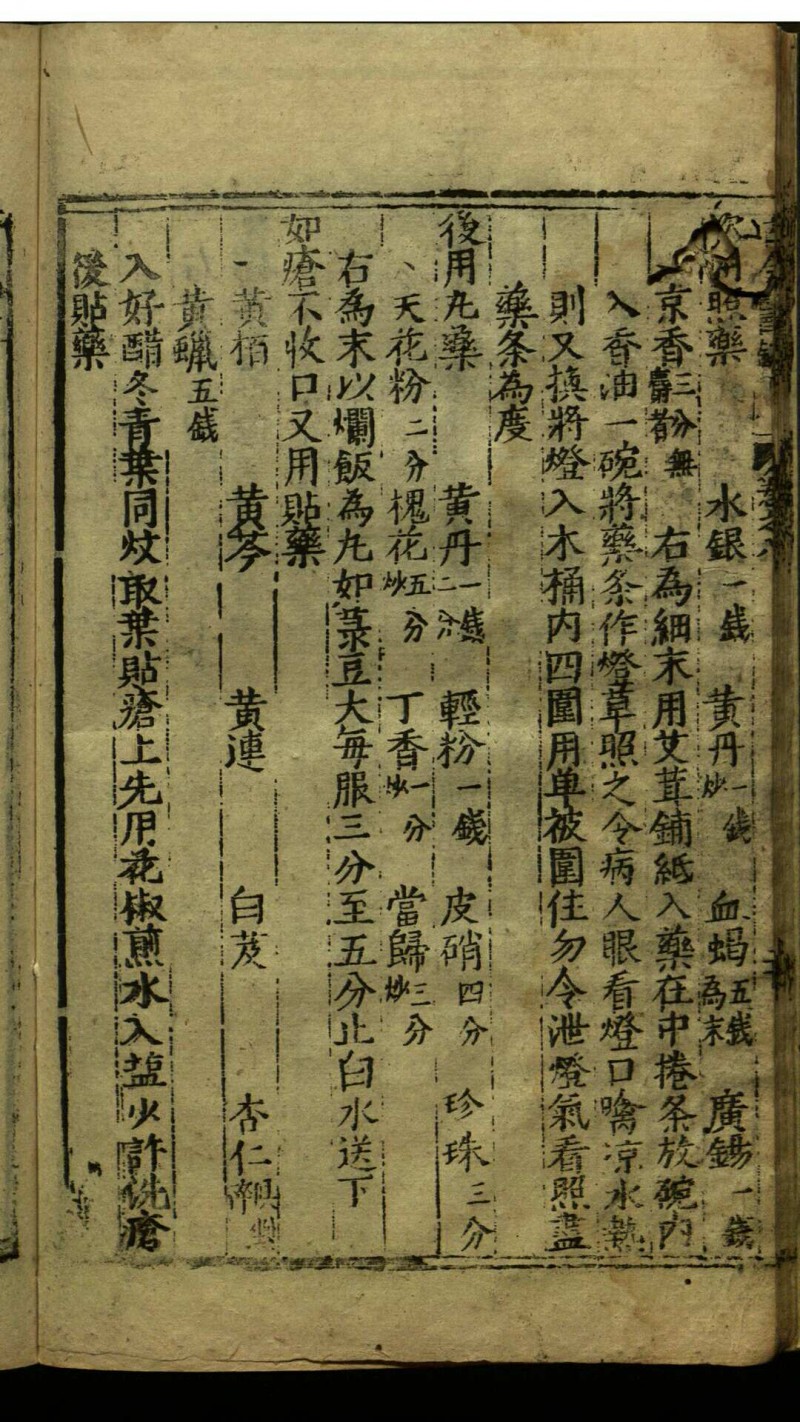 照藥 水銀一錢 黄丹炒一錢 血蝎五錢為末 廣錫一錢
京香三分無麝者 右為細末用艾茸鋪紙入藥在中捲条放碗内
入香油一碗將藥条作燈草照之令病人眼看燈口噙凉水熱
則又換將燈入木桶内四圍用单被圍住勿令泄燈氣看照盡
藥条為度
後用丸藥 黄丹一錢二分 輕粉一錢 皮硝四分 珍珠三分
天花粉二分 槐花炒五分 丁香炒一分 當歸炒三分
右為末以爛飯為丸如菉豆大每服三分至五分止白水送下
如瘡不收口又用貼藥
黄栢 黄芩 黄連 白芨 杏仁
黄蠟五錢
入好醋冬青葉同炆取葉貼瘡上先用花椒煎水入塩少許洗瘡
後貼藥